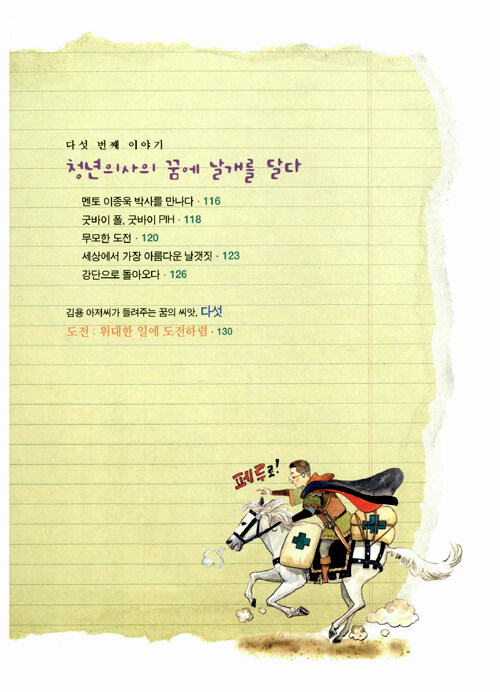 다섯 번째 이야기
청년의사의 꿈에 날개를 달다
멘토 이종욱 박사를 만나다 · 116
굿바이 폴, 굿바이 PIH · 118
무모한 도전 · 120
세상에서 가장 아름다운 날갯짓 · 123
강단으로 돌아오다 · 126
김용 아저씨가 들려주는 꿈의 씨앗, 다섯
도전 : 위대한 일에 도전하렴 · 130
페루로!